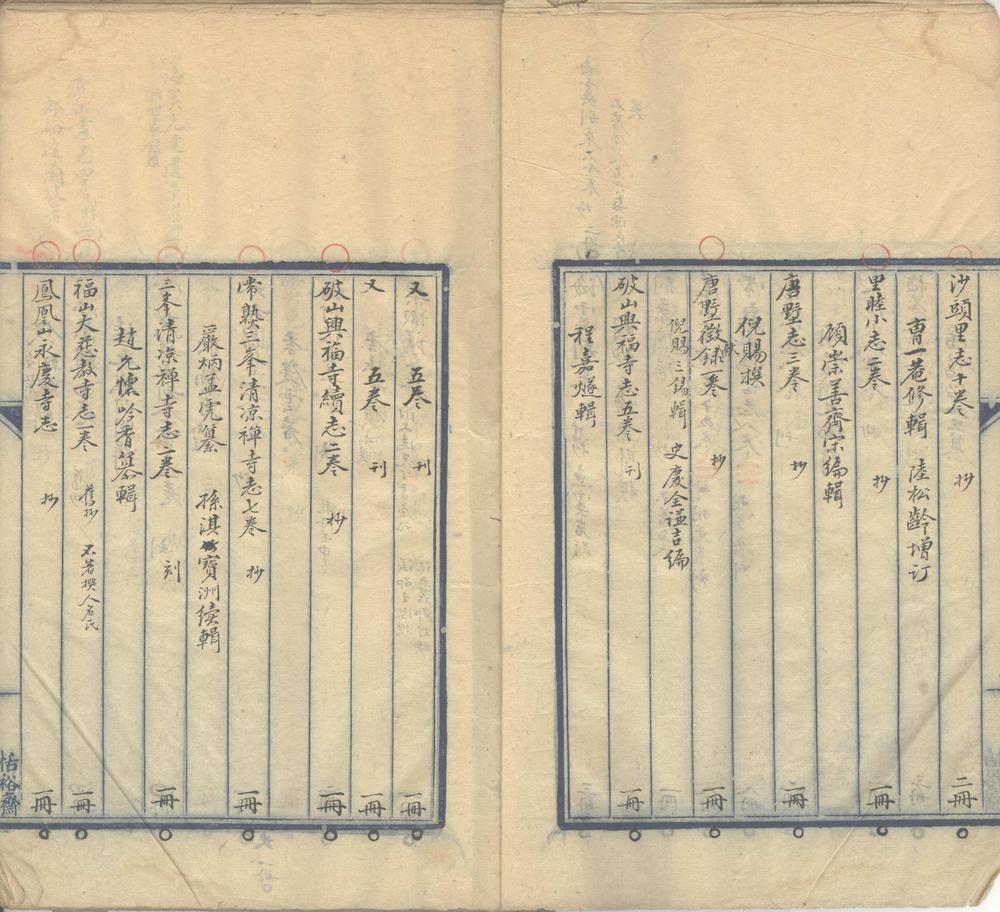 沙頭里志十卷 抄 二冊
曺一菴修輯 陸松齡增订
里睦小志二卷 抄 一冊
顧崇善齊宗编輯
唐墅志三卷 抄 二冊
倪賜撰
唐墅徵獻録一卷 抄 一冊
倪賜三錫輯 史慶全謙吉编
破山興福寺志五卷 刊 一冊
程嘉燧輯
又 五卷 刊 一冊
又 五卷 刊 一冊
破山興福寺續志二卷 抄 一冊
常熟三峯清涼禅寺志七卷 抄 一冊
嚴炳孟虎纂 孫淇寶洲續輯
三峯清凉禅寺志二卷 刻 一冊
趙允懷吟香纂輯
福山大慈教寺志一卷 舊抄 不著撰人名氏 一冊
鳳凰山永慶寺志 抄 一冊
恬裕齋